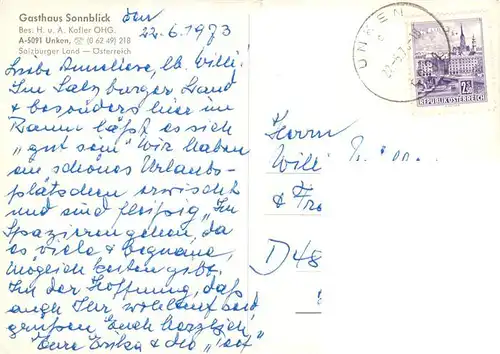 Gasthaus Sonnblick
Bes. H. u. A. Kofler OHG.
A-5091 Unken, ☏ (0 62 49) 218
Salzburger Land — Österreich
den
22.6.1973
Liebe Anneliese, lb. Willi!
Im Salzburger Land
& besonders hier im
Raum läßt es sich
„gut sein" Wir haben
ein schönes Urlaubs-
plätzchen erwischt
und sind fleißig „Im
Spazierengehen, da
es viele & bequeme,
möglichkeiten gibt.
In der Hoffnung, daß
auch Ihr wohlauf seid
grüßen Euch herzlich
Eure Erika &
UNKEN
REPUBLIK ÖSTERREICH
Herrn
Willi
& Fra
D 48